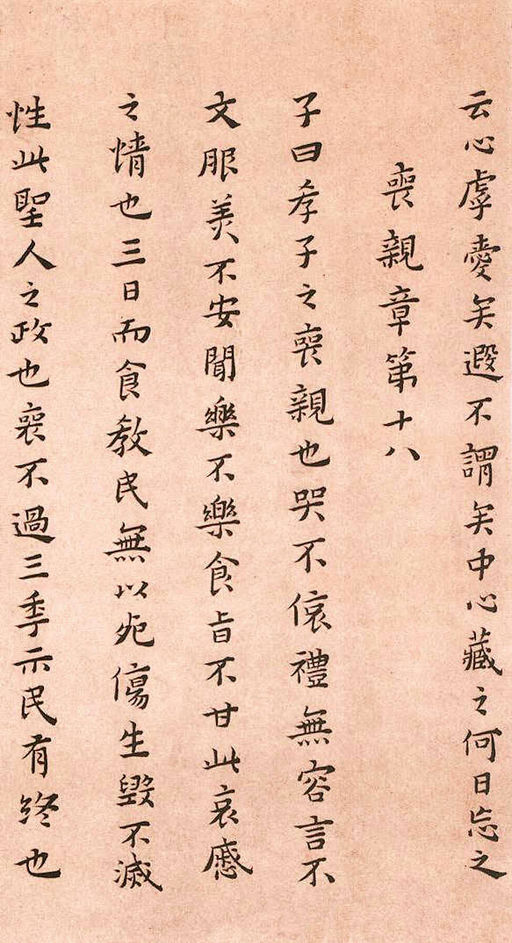 云心虖愛矣遐不謂矣中心藏之何日忘之
喪親章第十八
子曰孝子之喪親也哭不偯禮無容言不
文服美不安聞樂不樂食旨不甘此哀慼
之情也三日而食教民無以死傷生毀不滅
性此聖人之政也喪不過三秊示民有終也